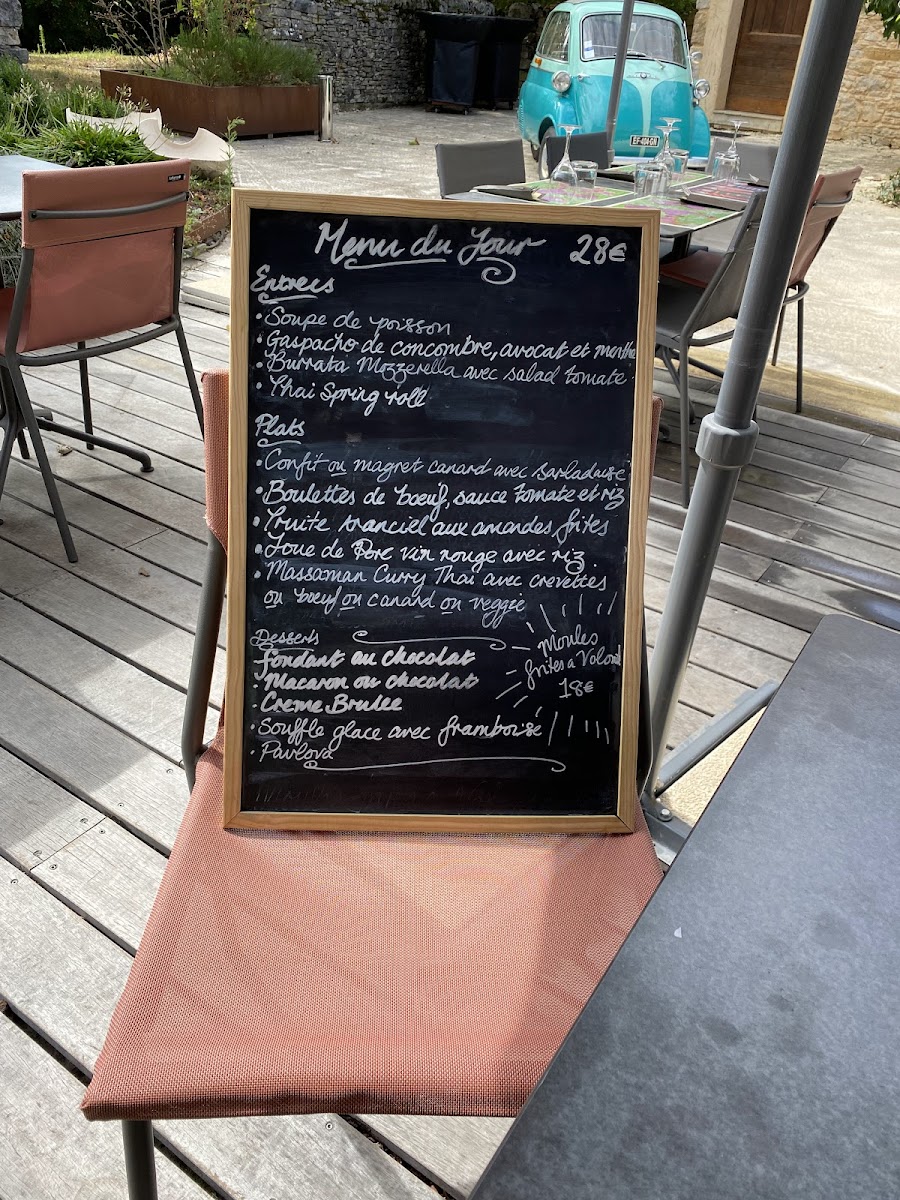 Menu du Jour 28€
Entrees
• Soupe de poisson
• Gaspacho de concombre, avocat et menthe
• Burrata Mozzerella avec salad tomate
• Thai Spring roll
Plats
• Confit ou magret canard avec sarladaise
• Boulettes de boeuf, sauce tomate et riz
• Truite aux amandes, frites
• Joue de Porc vin rouge avec riz
• Massaman Curry Thai avec crevettes
ou boeuf ou canard ou veggie
Desserts
fondant au chocolat
• Macaron au chocolat
• Creme Brulee
• Souffle glace avec framboise
• Pavlova
Moules
frites a Volonté
18€
EF-404-GH